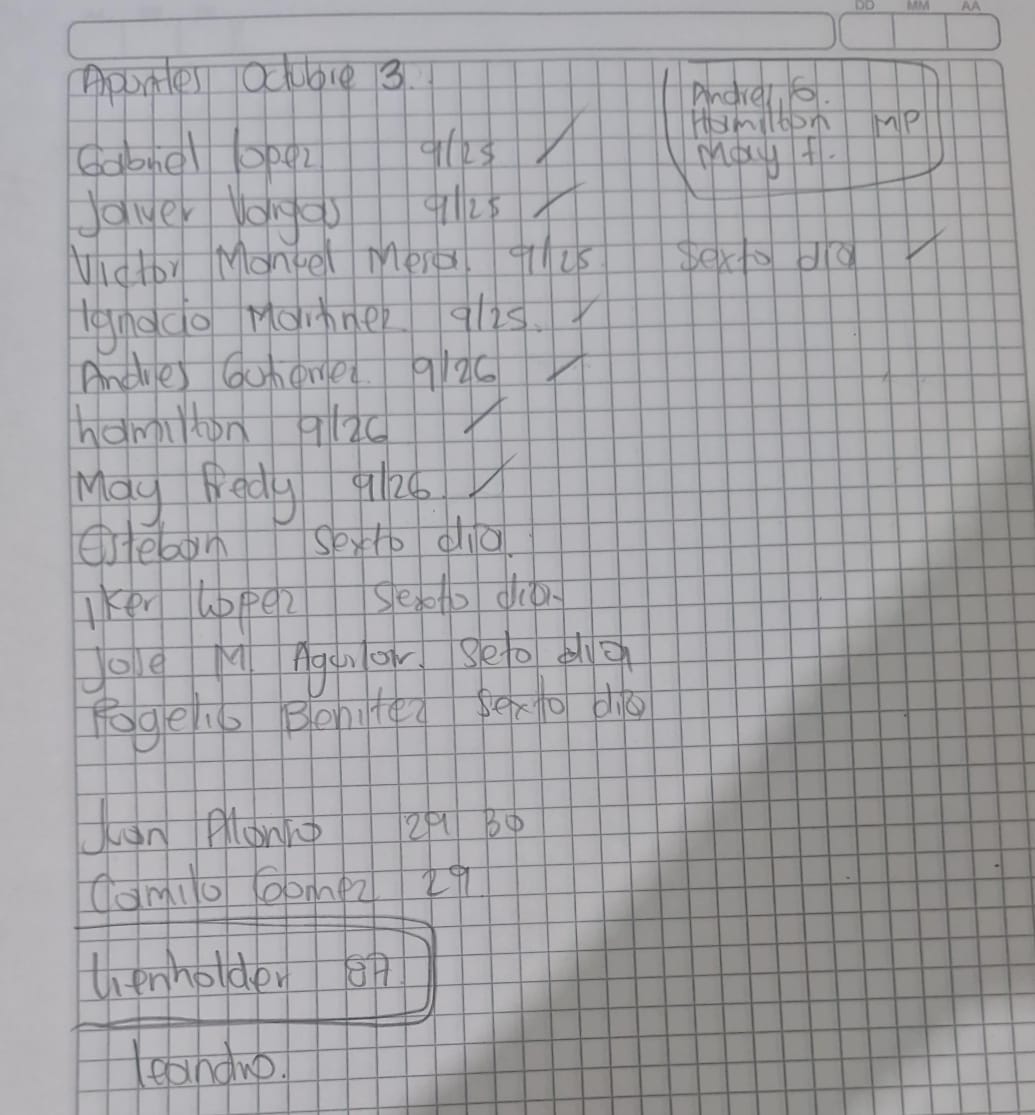 DD MM AA
Apuntes Octubre 3.
Andres G.
Hamilton MP
May f.
Gabriel lopez 9/25 ✓
Javier Vargas 9/25 ✓
Victor Manuel Mesa. 9/25 Sexto dia ✓
Ignacio Martinez 9/25. ✓
Andres Gutierrez 9/26 ✓
hamilton 9/26 ✓
May fredy 9/26 ✓
Esteban sexto dia.
Iker lopez sexto dia.
Jose M. Aguilar. Seto dia
Rogelio Benitez sexto dia
Juan Alonso 29 30
Camilo Gomez 29
lienholder
leandro.